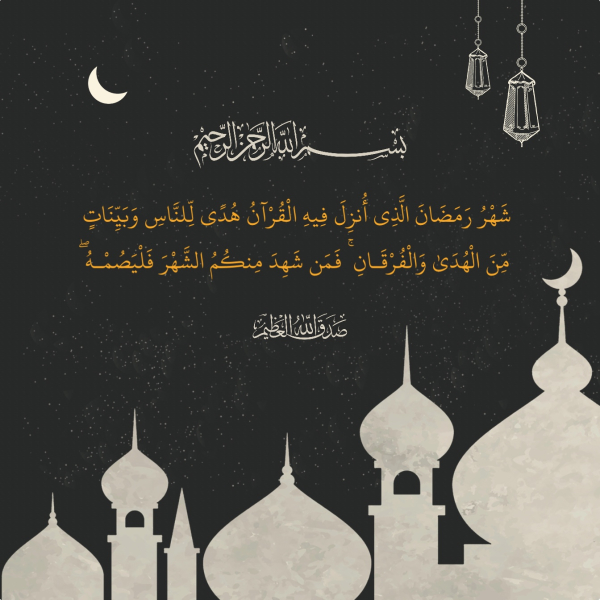 بسم الله الرحمن الرحيم
شَهْرُ رَمَضَانَ الَّذِى أُنزِلَ فِيهِ الْقُرْآنُ هُدًى لِّلنَّاسِ وَبَيِّنَاتٍ
مِّنَ الْهُدَىٰ وَالْفُرْقَـانِ ۚ فَمَن شَهِدَ مِنكُمُ الشَّهْرَ فَلْيَصُمْـهُ ۖ
صدق الله العظيم